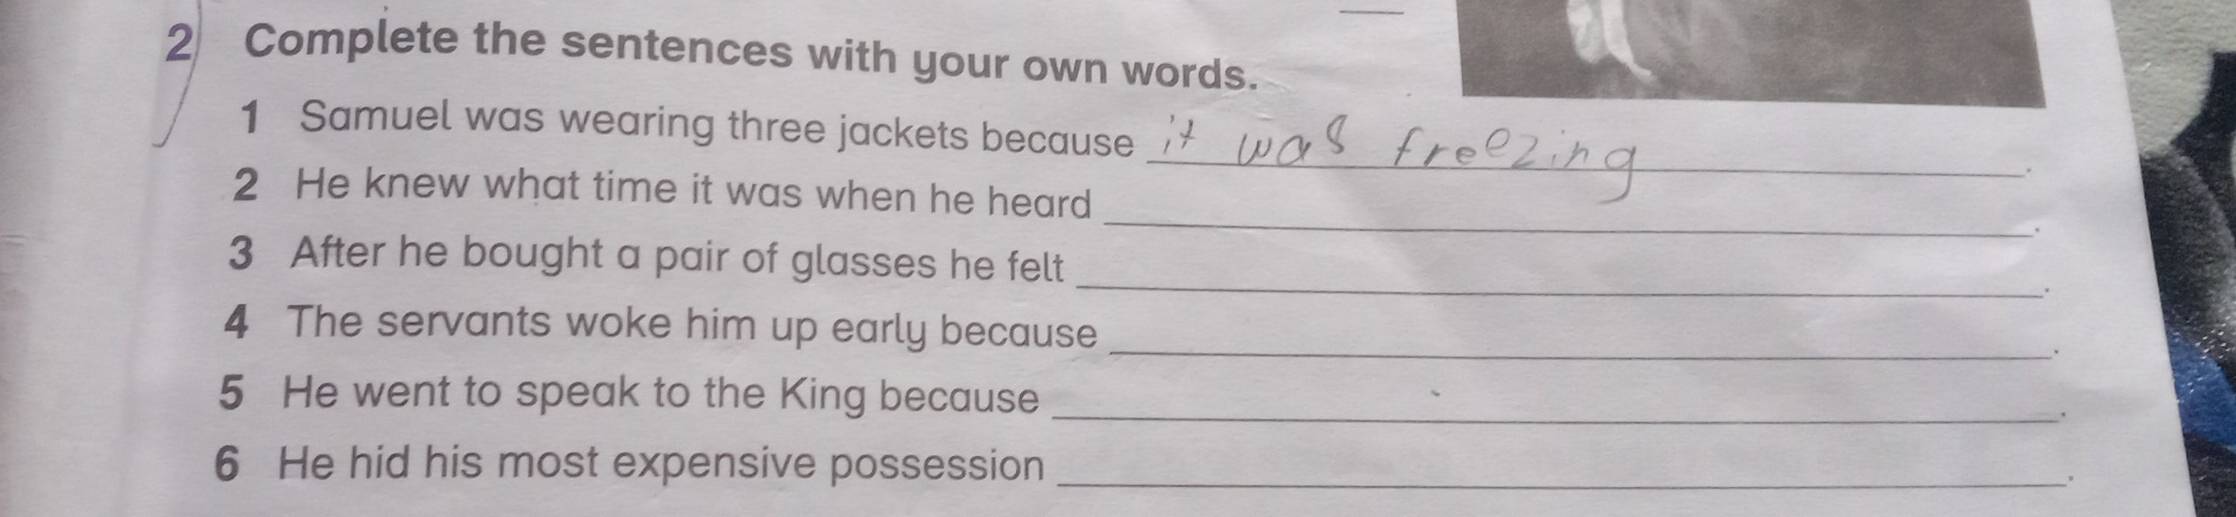 2 Complete the sentences with your own words.
1 Samuel was wearing three jackets because it was freezing.
2 He knew what time it was when he heard ____.
3 After he bought a pair of glasses he felt ____.
4 The servants woke him up early because ____.
5 He went to speak to the King because ____.
6 He hid his most expensive possession ____.